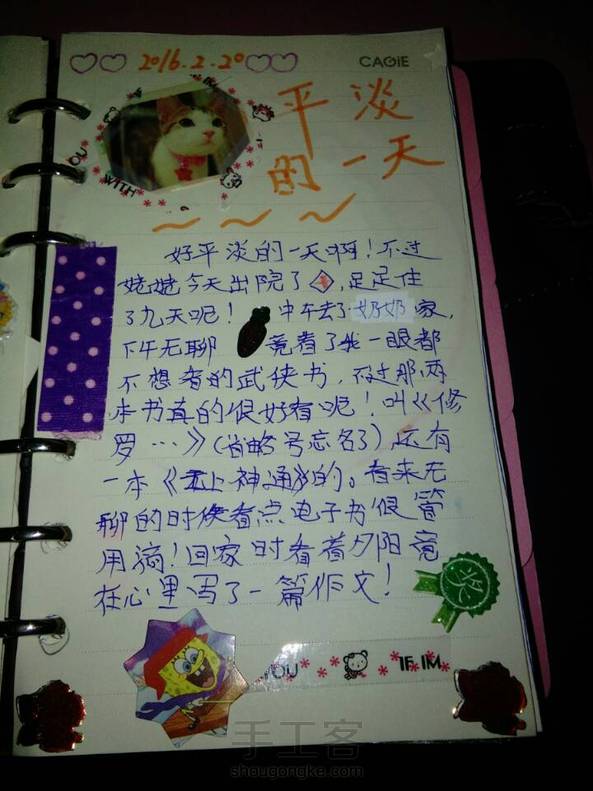 2016.2.20
CAGiE
平淡
的一天
YOU
WITH
好平淡的一天啊！不过
姥姥今天出院了，足足住
了九天呢！中午去了奶奶家，
下午无聊 竟看了我一眼都
不想看的武侠书，不过那两
本书真的很好看呢！叫《修
罗…》（省略号忘名了），还有
一本《无上神通》的。看来无
聊的时候看点电子书很管
用滴！回家时看着夕阳竟
在心里写了一篇作文！
YOU
IF IM
手工客
shougongke.com